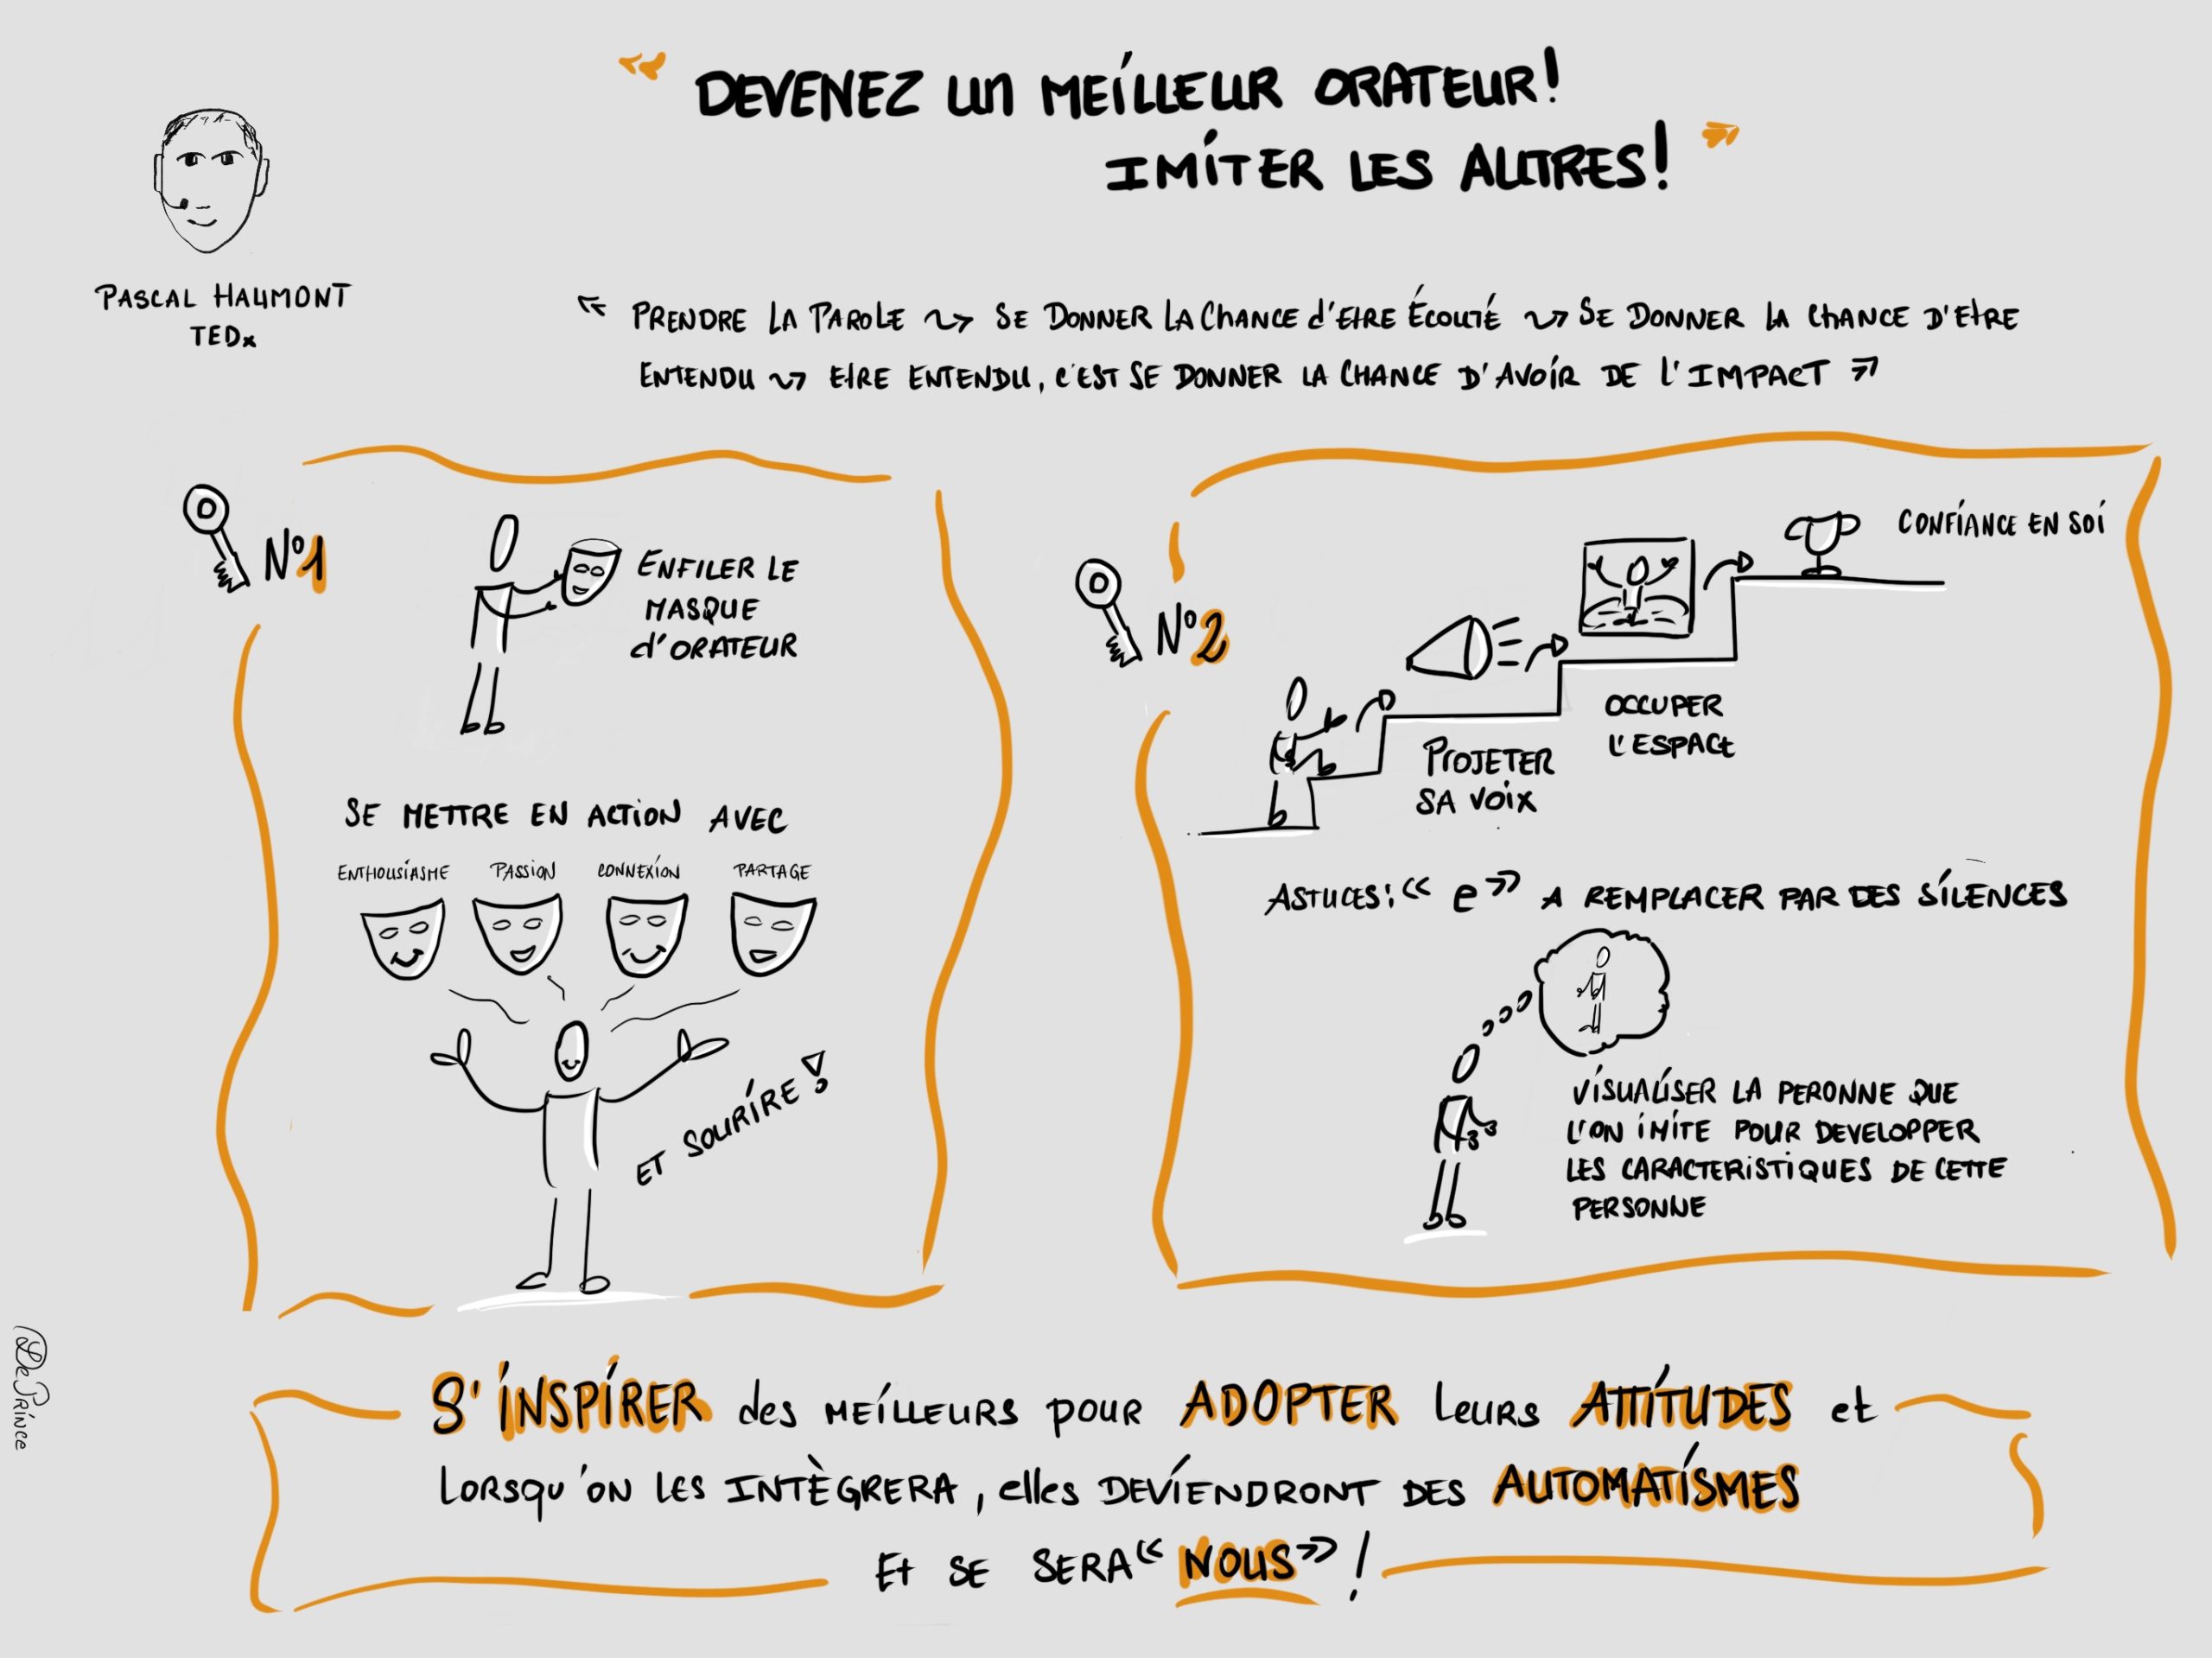 « DEVENEZ un MEILLEUR ORATEUR!
IMITER LES AUTRES! »
PASCAL HAUMONT
TEDx
« PRENDRE LA PAROLE ⤳ SE DONNER LA CHANCE d'ETRE ÉCOUTÉ ⤳ SE DONNER LA CHANCE D'ETRE
ENTENDU ⤳ ETRE ENTENDU, C'EST SE DONNER LA CHANCE D'AVOIR DE L'IMPACT »
N°1
ENFILER LE
MASQUE
d'ORATEUR
SE METTRE EN ACTION AVEC
ENTHOUSIASME PASSION CONNEXION PARTAGE
ET SOURIRE!
N°2
CONFIANCE EN SOI
OCCUPER
L'ESPACE
PROJETER
SA VOIX
ASTUCES: « e » A REMPLACER PAR DES SILENCES
VISUALISER LA PERONNE QUE
L'ON IMITE POUR DEVELOPPER
LES CARACTERISTIQUES DE CETTE
PERSONNE
S'INSPIRER des MEILLEURS POUR ADOPTER Leurs ATTITUDES et
LORSQU'ON LES INTÈGRERA, elles DEVIENDRONT DES AUTOMATISMES
Et SE SERA « NOUS » !
@DePrince